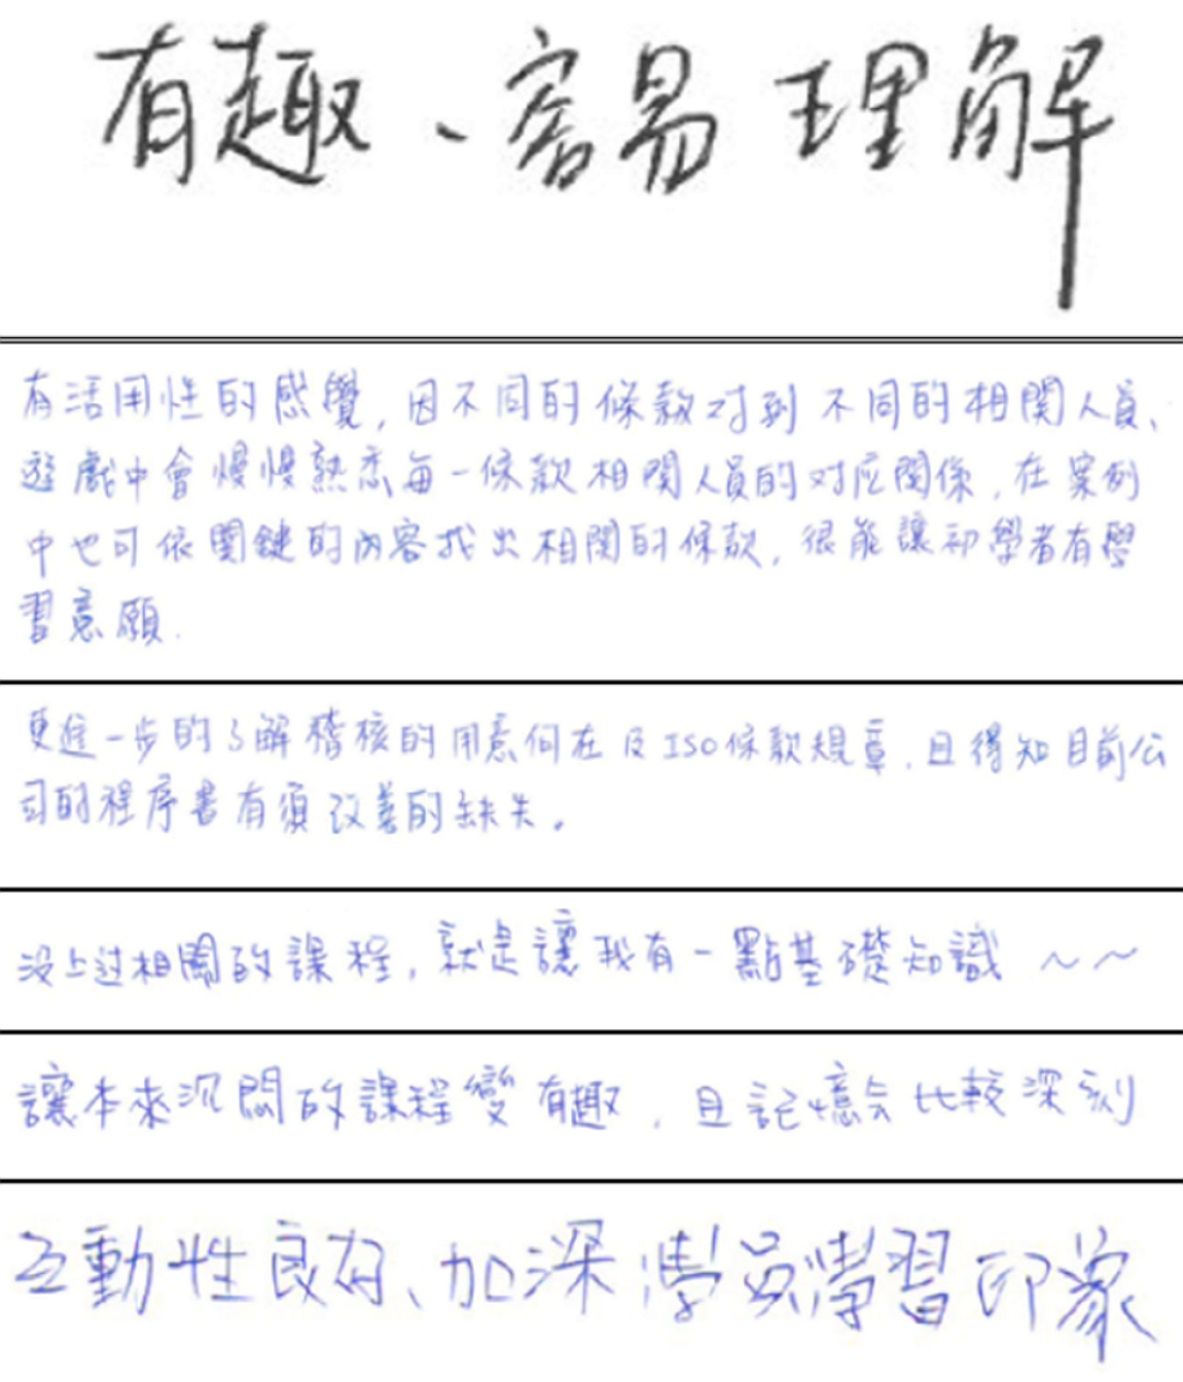 有趣、容易理解
有活用性的感覺，因不同的條款对到不同的相関人員、
遊戲中會慢慢熟悉每一條款相関人員的对应関係，在案例
中也可依関鍵的內容找出相関的條款，很能讓初學者有學
習意願.
更進一步的了解稽核的用意何在及ISO條款規章，且得知目前公
司的程序書有須改善的缺失。
没上过相関的課程，就是讓我有一點基礎知識～～
讓本來沉悶的課程變有趣，且記憶会比較深刻
互動性良好、加深學員學習印象